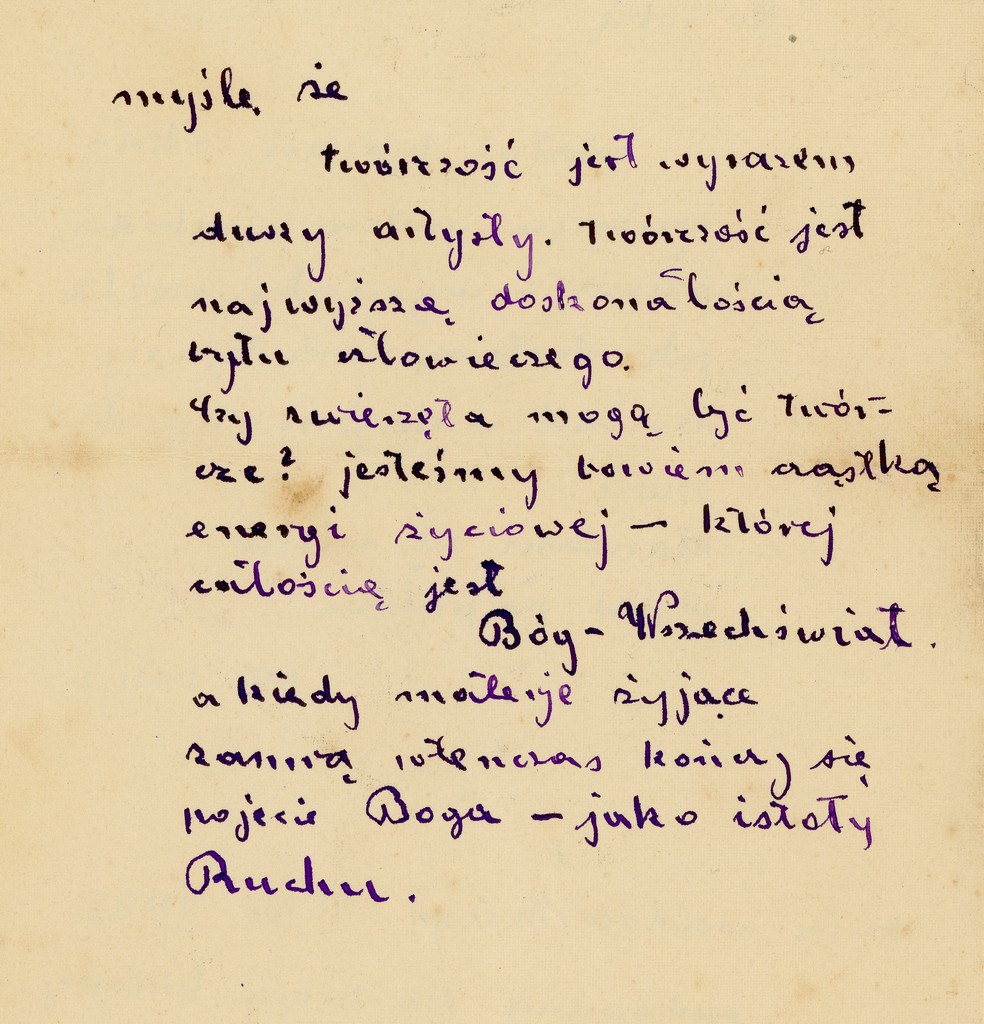 myślę że
twórczość jest wyrazem
duszy artysty. twórczość jest
najwyższą doskonałością
bytu człowieczego.
Czy zwierzęta mogą być twór-
cze? jesteśmy bowiem cząstką
energi życiowej – której
całością jest
Bóg – Wszechświat.
a kiedy materje żyjące
zamrą wtenczas kończy się
pojęcie Boga – jako istoty
Ruchu.